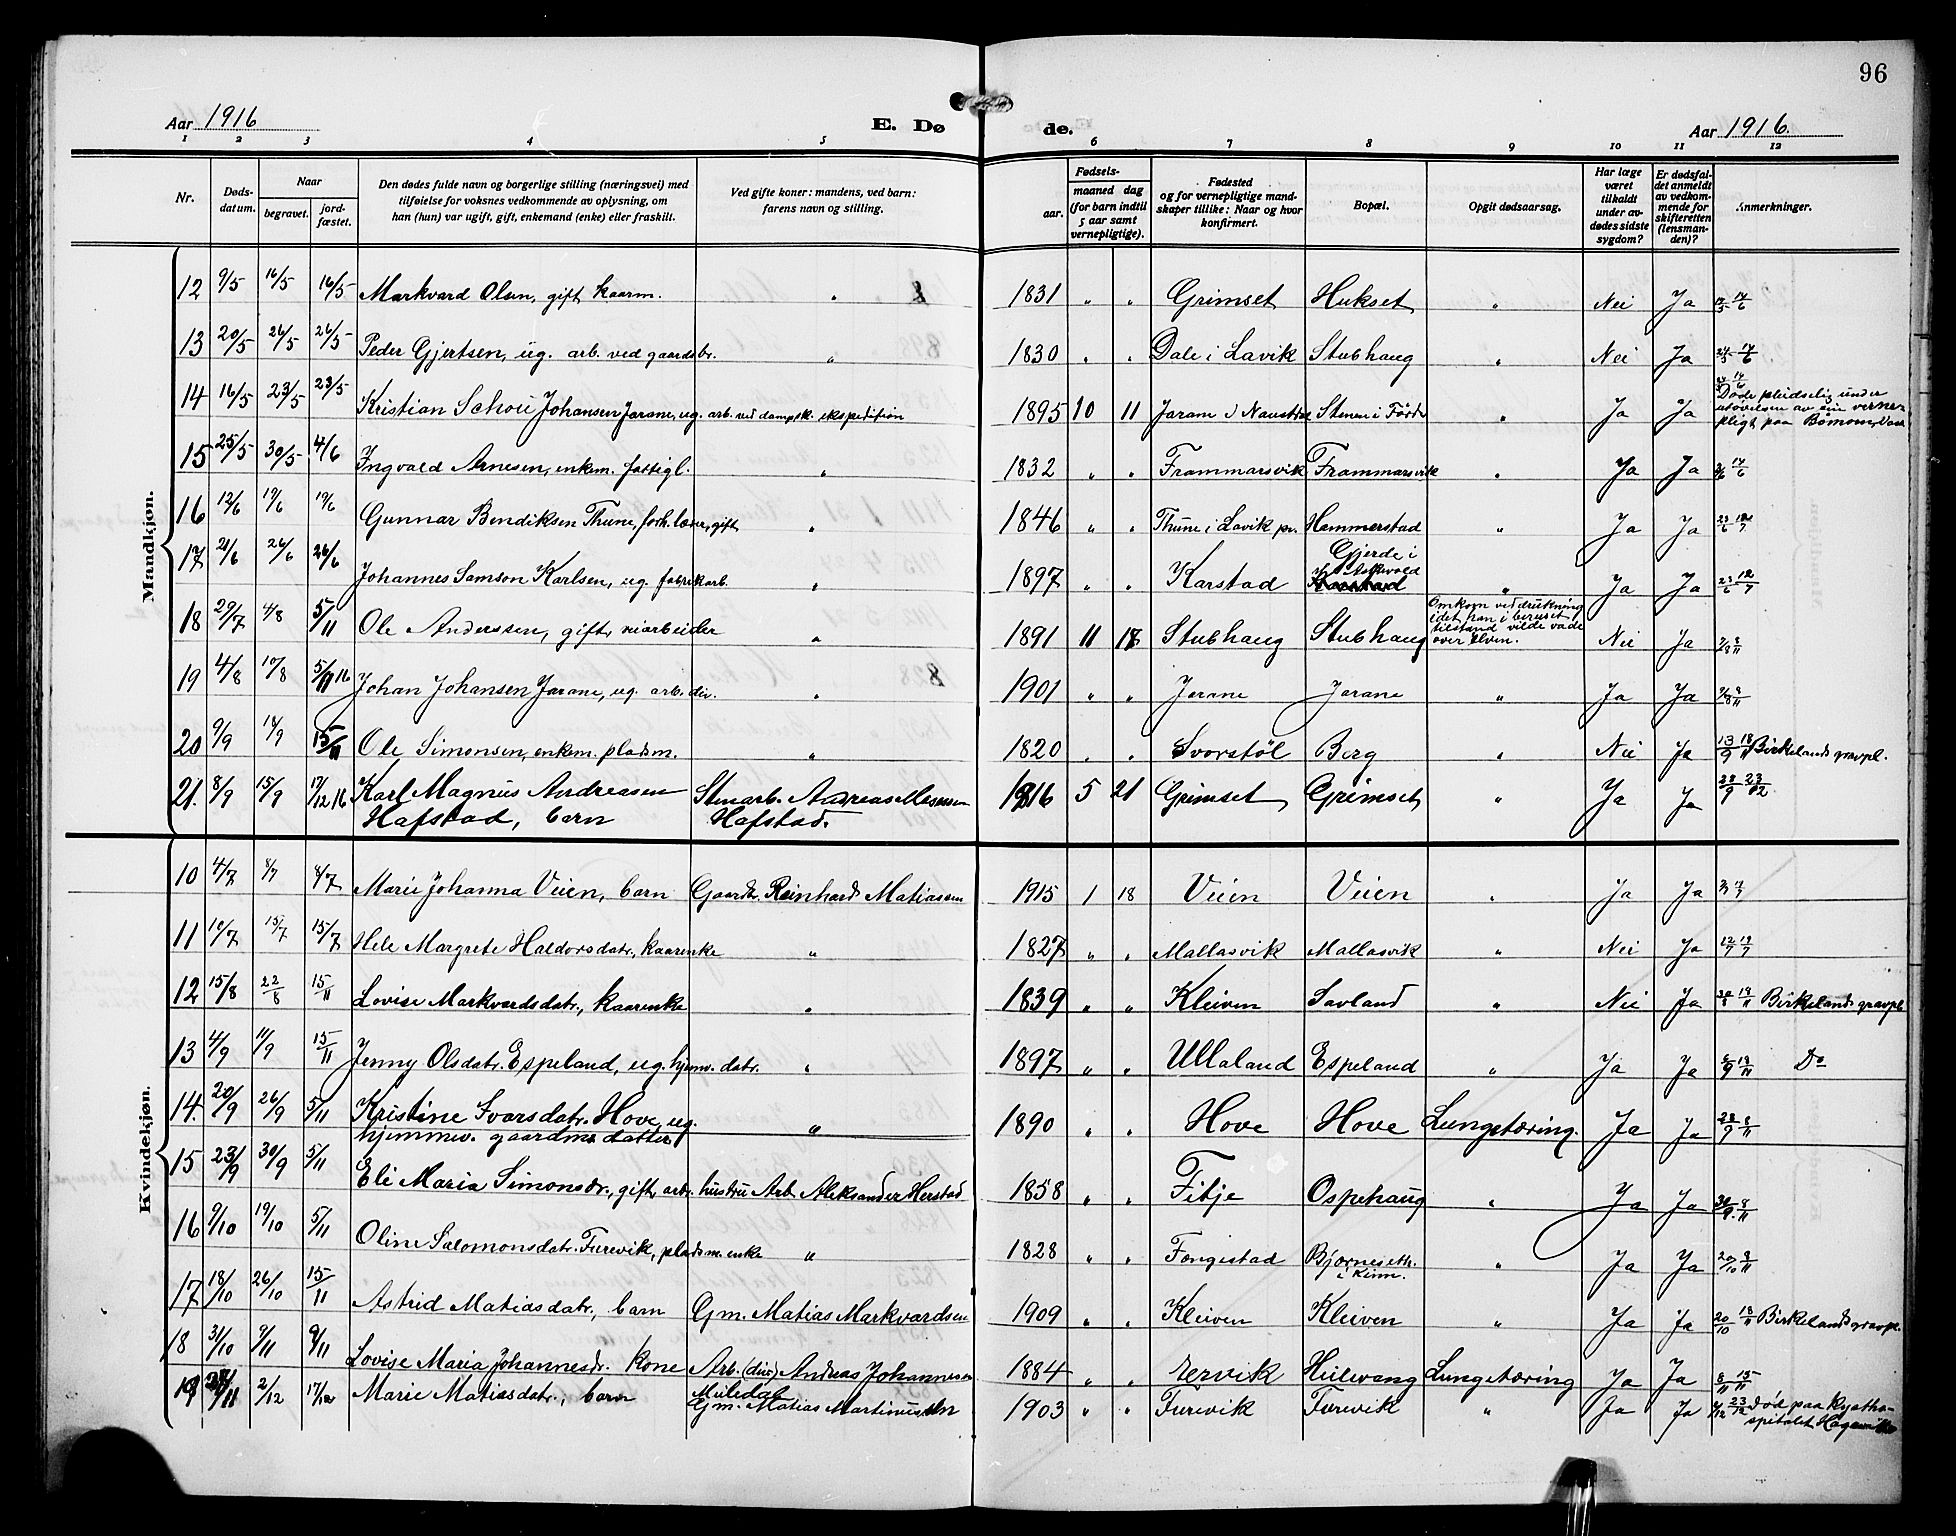 96
Aar 1916
E. Dø
de.
Aar 1916.
1 2 3 4 5 6 7 8 9 10 11 12
Nr.
Døds-datum.
Naar
begravet.
jord-fæstet.
Den dødes fulde navn og borgerlige stilling (næringsvei) med
tilføielse for voksnes vedkommende av oplysning, om
han (hun) var ugift, gift, enkemand (enke) eller fraskilt.
Ved gifte koner: mandens, ved barn:
farens navn og stilling.
Fødsels-
aar.
maaned
dag
(for barn indtil
5 aar samt
vernepligtige).
Fødested
og for vernepligtige mand-
skaper tillike: Naar og hvor
konfirmert.
Bopæl.
Opgit dødsaarsag.
Har læge
været
tilkaldt
under av-
dødes sidste
sygdom?
Er dødsfal-
det anmeldt
av vedkom-
mende for
skifteretten
(lensman-
den)?
Anmerkninger.
Mandkjøn.
12 9/5 16/5 16/5 Markvard Olsen, gift kaarm. " 1831 " " Grimset Hukset " Nei Ja 14/6
13 20/5 26/5 26/5 Peder Gjertsen, ug. arb. ved gaardsbr. " 1830 " " Dale i Lavik Stubhaug " Nei Ja 14/6
14 16/5 23/5 23/5 Kristian Schou Johansen Jarane, ug. arb. ved dampsk. ekspedition 1895 10 11 Jarane i Naustdal Stenen i Førde " Ja Ja 14/6
Døde pludselig under
utøvelsen av sin verne-
pligt paa Bømoen, Voss
15 25/5 30/5 4/6 Ingvald Arnesen, enkem. fattigl. " 1832 " " Frammarsvik Frammarsvik " Ja Ja 14/6
16 12/6 19/6 19/6 Gunnar Bendiksen Thune, forh. lærer, gift " 1846 " " Thune i Lavik pr. Hammerstad " Ja Ja 23/6 12/7
17 21/6 26/6 26/6 Johannes Samson Karlsen, ug. fabrikarb. " 1897 " " Karstad Gjerde i
Askvold
Karstad " Ja Ja 23/6 12/7
18 29/7 4/8 5/11 Ole Anderssen, gift, veiarbeider " 1891 11 18 Stubhaug Stubhaug
Omkom ved drukning
idet han i beruset
tilstand vilde vade
over elven. Nei Ja 7/8 8/11
19 4/8 10/8 5/11 16 Johan Johansen Jarane, ug. arb. div. " 1901 " " Jarane Jarane " Ja Ja 8/11
20 9/9 18/9 15/11 Ole Simonsen, enkem. pladsm. " 1820 " " Svorstøl Berg " Nei Ja 13/9 18/11 Birkelands gravpl.
21. 8/9 15/9 17/12 16 Karl Magnus Andreasen
Hafstad, barn Stenarb. Andreas Mesensen
Hafstad. 1916 5 21 Grimset Grimset " Ja Ja 28/9 23/12
Kvindekjøn.
10 4/7 8/7 8/7 Marie Johanna Veien, barn Gaardbr. Reinhard Matiassen 1915 1 18 Veien Veien " Ja Ja
11 10/7 15/7 15/7 Hele Margrete Haldorsdatr., kaarenke " 1827 " " Mallasvik Mallasvik " Nei Ja 12/7 19/7
12 15/8 22/8 15/11 Lovise Markvardsdatr., kaarenke " 1839 " " Kleiven Savland " Nei Ja 30/8 18/11 Birkelands gravpl
13 4/9 11/9 15/11 Jenny Olsdatr. Espeland, ug. hjemv. datr. " 1897 " " Ullaland Espeland " Ja Ja 8/9 18/11 Do
14. 20/9 26/9 5/11 Kristine Ivarsdatr. Hove, ug.
hjemmev. gaardms datter " 1890 " " Hove Hove Lungetæring. Ja Ja 28/9 8/11
15 23/9 30/9 5/11 Eli Maria Simonsdr., gift, arb. hustru Arb. Aleksander Herstad 1858 " " Fitje Ospehaug " Ja Ja 30/9. 8/11
16 9/10 19/10 5/11 Oline Salomonsdatr. Furevik, pladsm. enke " 1828 " " Fængestad Bjørneseth.
i Kinn. " Ja Ja 20/10 8/11
17 18/10 26/10 15/11 Astrid Matiasdatr., barn Gm. Matias Markvardsen 1909 " " Kleiven Kleiven " Ja Ja 20/10 18/11 Birkelands gravpl.
18 31/10 9/11 9/11 Lovise Maria Johannesdr. kone Arb. (div) Andreas Johannesen
Mieledal 1884 " " Eervik Heilevang Lungetæring Ja Ja 8/11 15/11
19 2/12 17/12 Marie Matiasdatr., barn Gm. Matias Martinussen 1903 " " Furevik Furevik " Ja Ja 7/12 23/12 Død paa Kysthospitalet